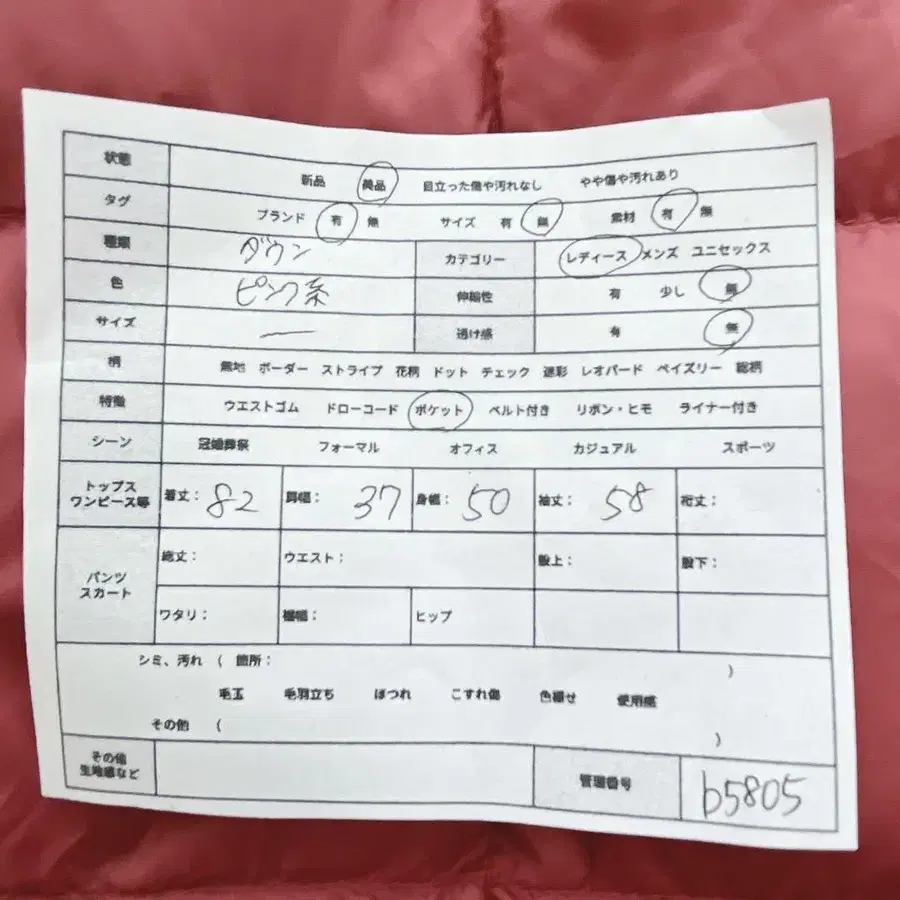 状態 新品 美品 目立った傷や汚れなし やや傷や汚れあり
タグ ブランド 有 無 サイズ 有 無 素材 有 無
種類 ダウン カテゴリー レディース メンズ ユニセックス
色 ピンク系 伸縮性 有 少し 無
サイズ ー 透け感 有 無
柄 無地 ボーダー ストライプ 花柄 ドット チェック 迷彩 レオパード ペイズリー 総柄
特徴 ウエストゴム ドローコード ポケット ベルト付き リボン・ヒモ ライナー付き
シーン 冠婚葬祭 フォーマル オフィス カジュアル スポーツ
トップス
ワンピース等 着丈: 82 肩幅: 37 身幅: 50 袖丈: 58 裄丈:
パンツ
スカート 総丈: ウエスト: 股上: 股下:
ワタリ: 裾幅: ヒップ
シミ、汚れ ( 箇所: )
毛玉 毛羽立ち ほつれ こすれ傷 色褪せ 使用感
その他 ( )
その他
生地感など 管理番号 b5805